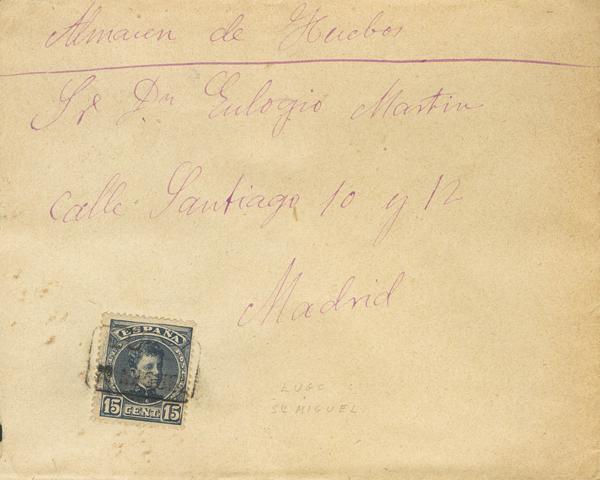 Almacen de Huebos
Sr Dn Eulogio Martin
Calle Santiago 10 y 12
Madrid
ESPAÑA
15 CENT 15
LUGO
Sn MIGUEL